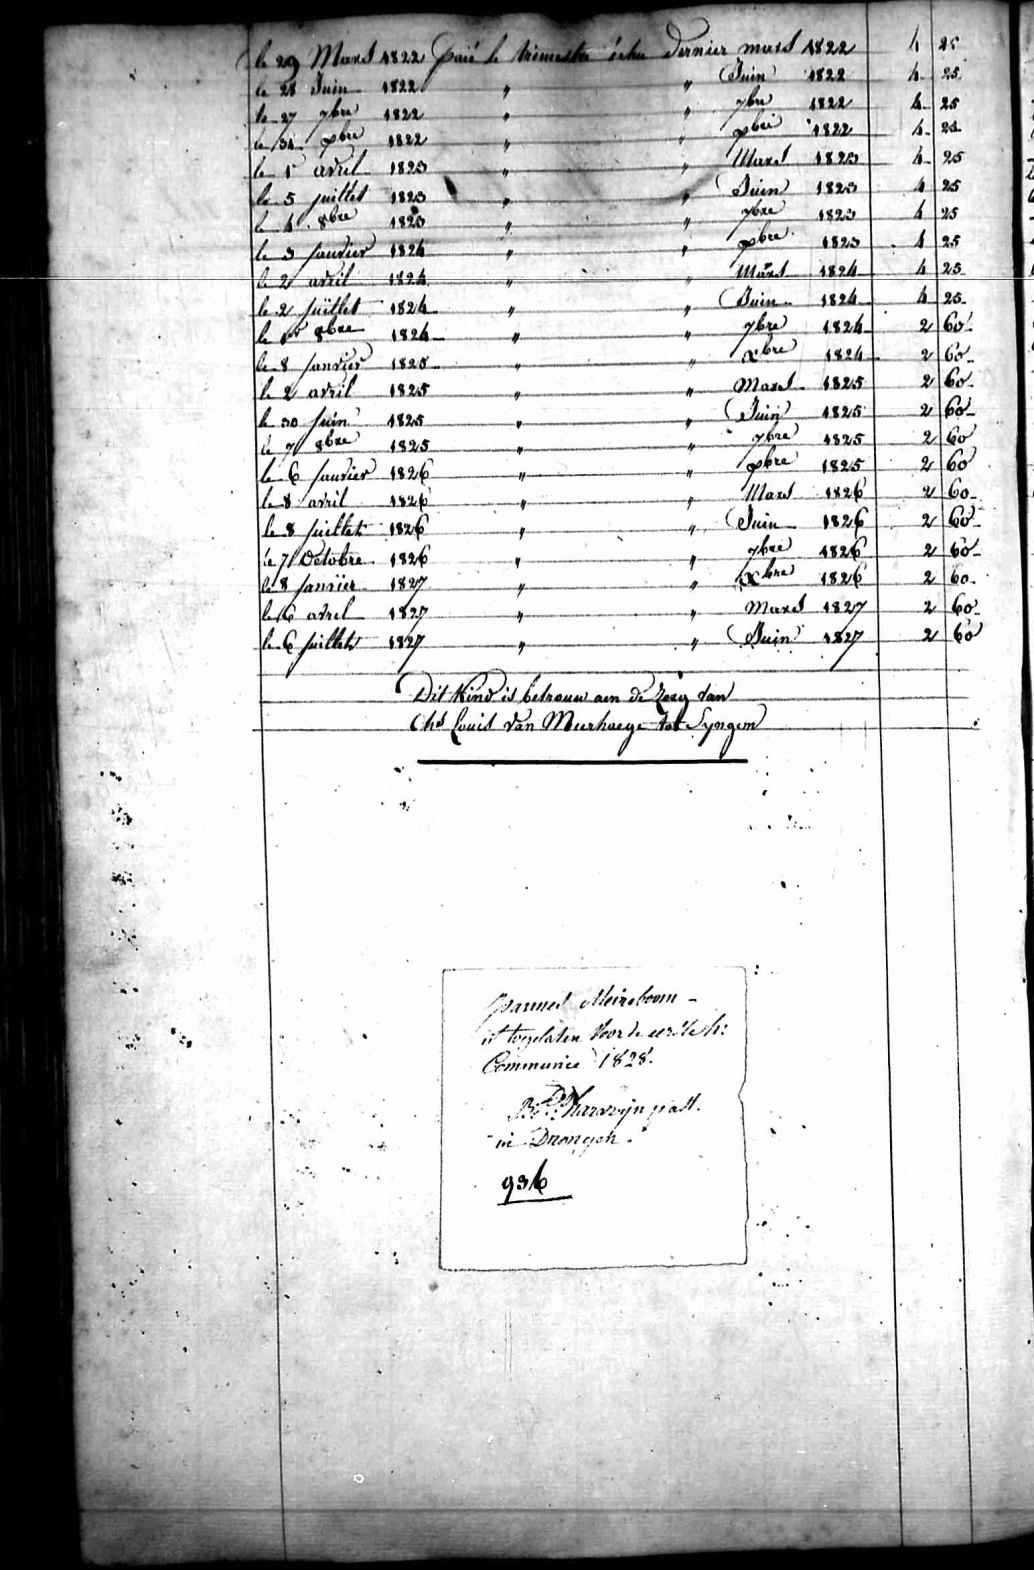 le 29 Mars 1822 payé le trimestre échu dernier mars 1822 4 25
le 28 Juin 1822 " " Juin 1822 4 25
le 27 7bre 1822 " " 7bre 1822 4 25
le 31 xbre 1822 " " xbre 1822 4 25
le 1r avril 1823 " " Mars 1823 4 25
le 5 juillet 1823 " " Juin 1823 4 25
le 4 8bre 1823 " " 7bre 1823 4 25
le 3 janvier 1824 " " xbre 1823 4 25
le 2 avril 1824 " " Mars 1824 4 25
le 2 juillet 1824 " " Juin 1824 4 25
le 1r 8bre 1824 " " 7bre 1824 2 60
le 8 janvier 1825 " " xbre 1824 2 60
le 2 avril 1825 " " Mars 1825 2 60
le 30 juin 1825 " " Juin 1825 2 60
le 7 8bre 1825 " " 7bre 1825 2 60
le 6 janvier 1826 " " xbre 1825 2 60
le 8 avril 1826 " " Mars 1826 2 60
le 8 juillet 1826 " " Juin 1826 2 60
le 7 Octobre 1826 " " 7bre 1826 2 60
le 8 janvier 1827 " " xbre 1826 2 60
le 6 avril 1827 " " Mars 1827 2 60
le 6 juillet 1827 " " Juin 1827 2 60
Dit Kind is betrouw aen de Zorg van
Chs Louis Van Meerhaege tot Syngem
Meireboom -
is toegelaten voor de eerste h:
Communie 1828.
past.
in Drongen.
936